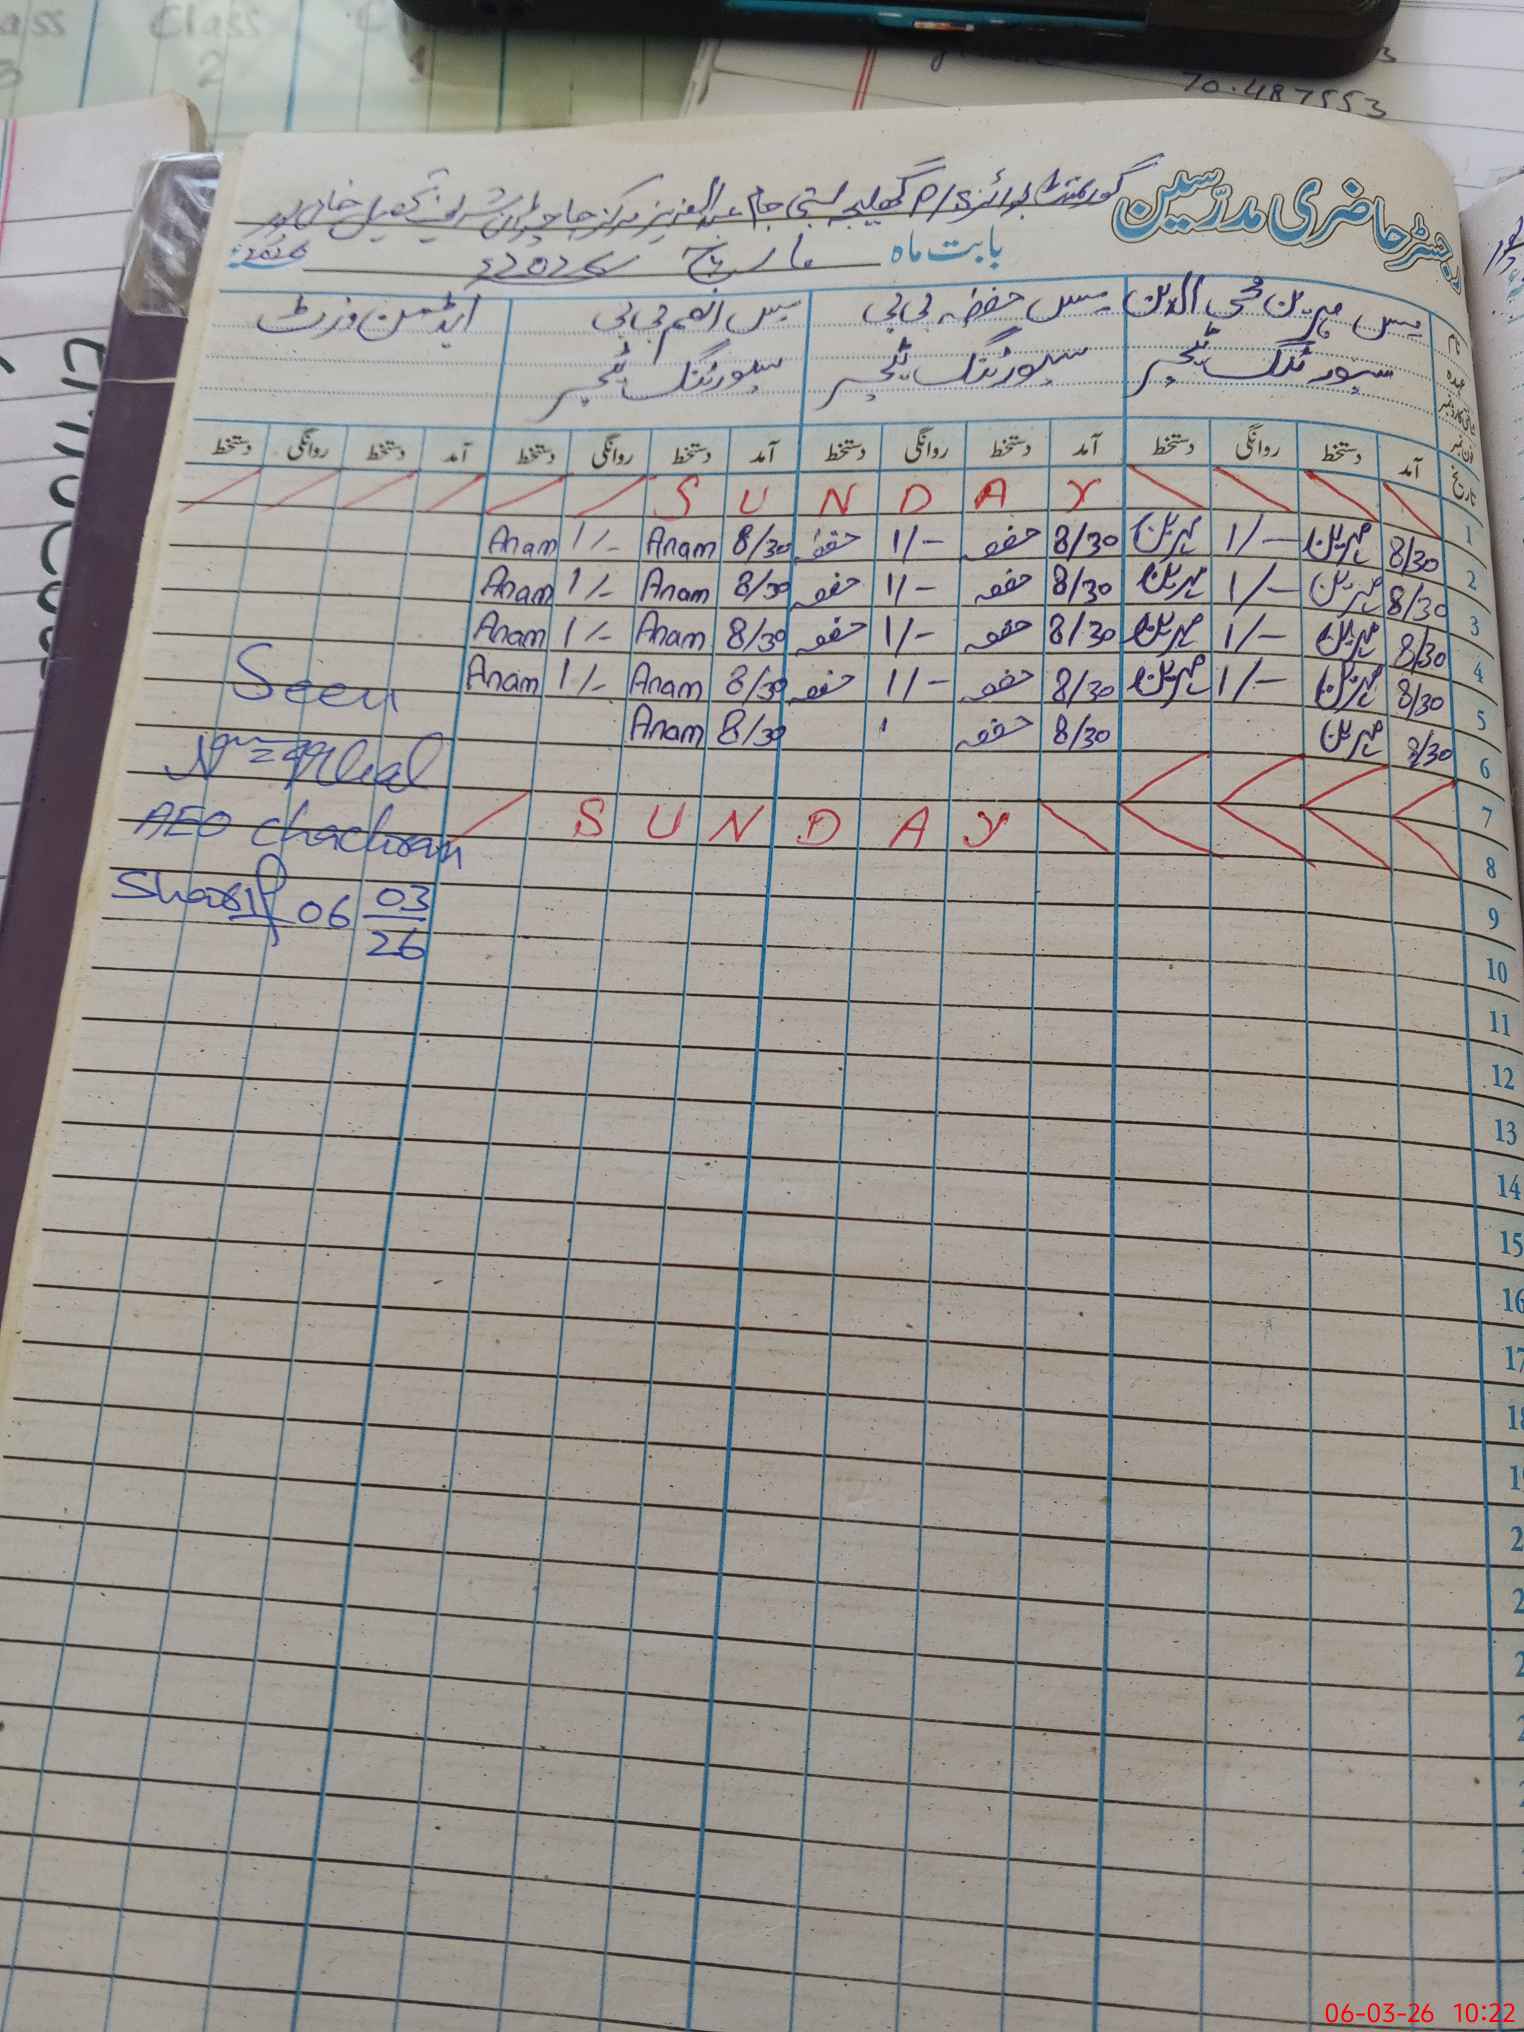 Class Class
3 2 1
70.487553
رجسٹر حاضری مدرسین
گورنمنٹ بوائز P/S گھلیجہ بستی جام عبدالعزیز مرکز چاچڑاں شریف تحصیل خان پور
بابت ماہ مارچ 2026ء 2026ء
مس مہرین محی الدین مس حفضہ بی بی مس انعم بی بی ایڈمن وزٹ
نام
سپورٹنگ ٹیچر سپورٹنگ ٹیچر سپورٹنگ ٹیچر
عہدہ
تاریخ آمد دستخط روانگی دستخط آمد دستخط روانگی دستخط آمد دستخط روانگی دستخط آمد دستخط روانگی دستخط
1 S U N D A Y
2 8/30 مہرین 1/- مہرین 8/30 حفضہ 1/- حفضہ 8/30 Anam 1/- Anam
3 8/30 مہرین 1/- مہرین 8/30 حفضہ 1/- حفضہ 8/30 Anam 1/- Anam
4 8/30 مہرین 1/- مہرین 8/30 حفضہ 1/- حفضہ 8/30 Anam 1/- Anam
5 8/30 مہرین 1/- مہرین 8/30 حفضہ 1/- حفضہ 8/30 Anam 1/- Anam
6 8/30 مہرین 8/30 حفضہ 8/30 Anam
7
8 S U N D A Y
Seen
AEO chachran
Sharif 06 03/26
9
10
11
12
13
14
15
16
17
18
06-03-26 10:22